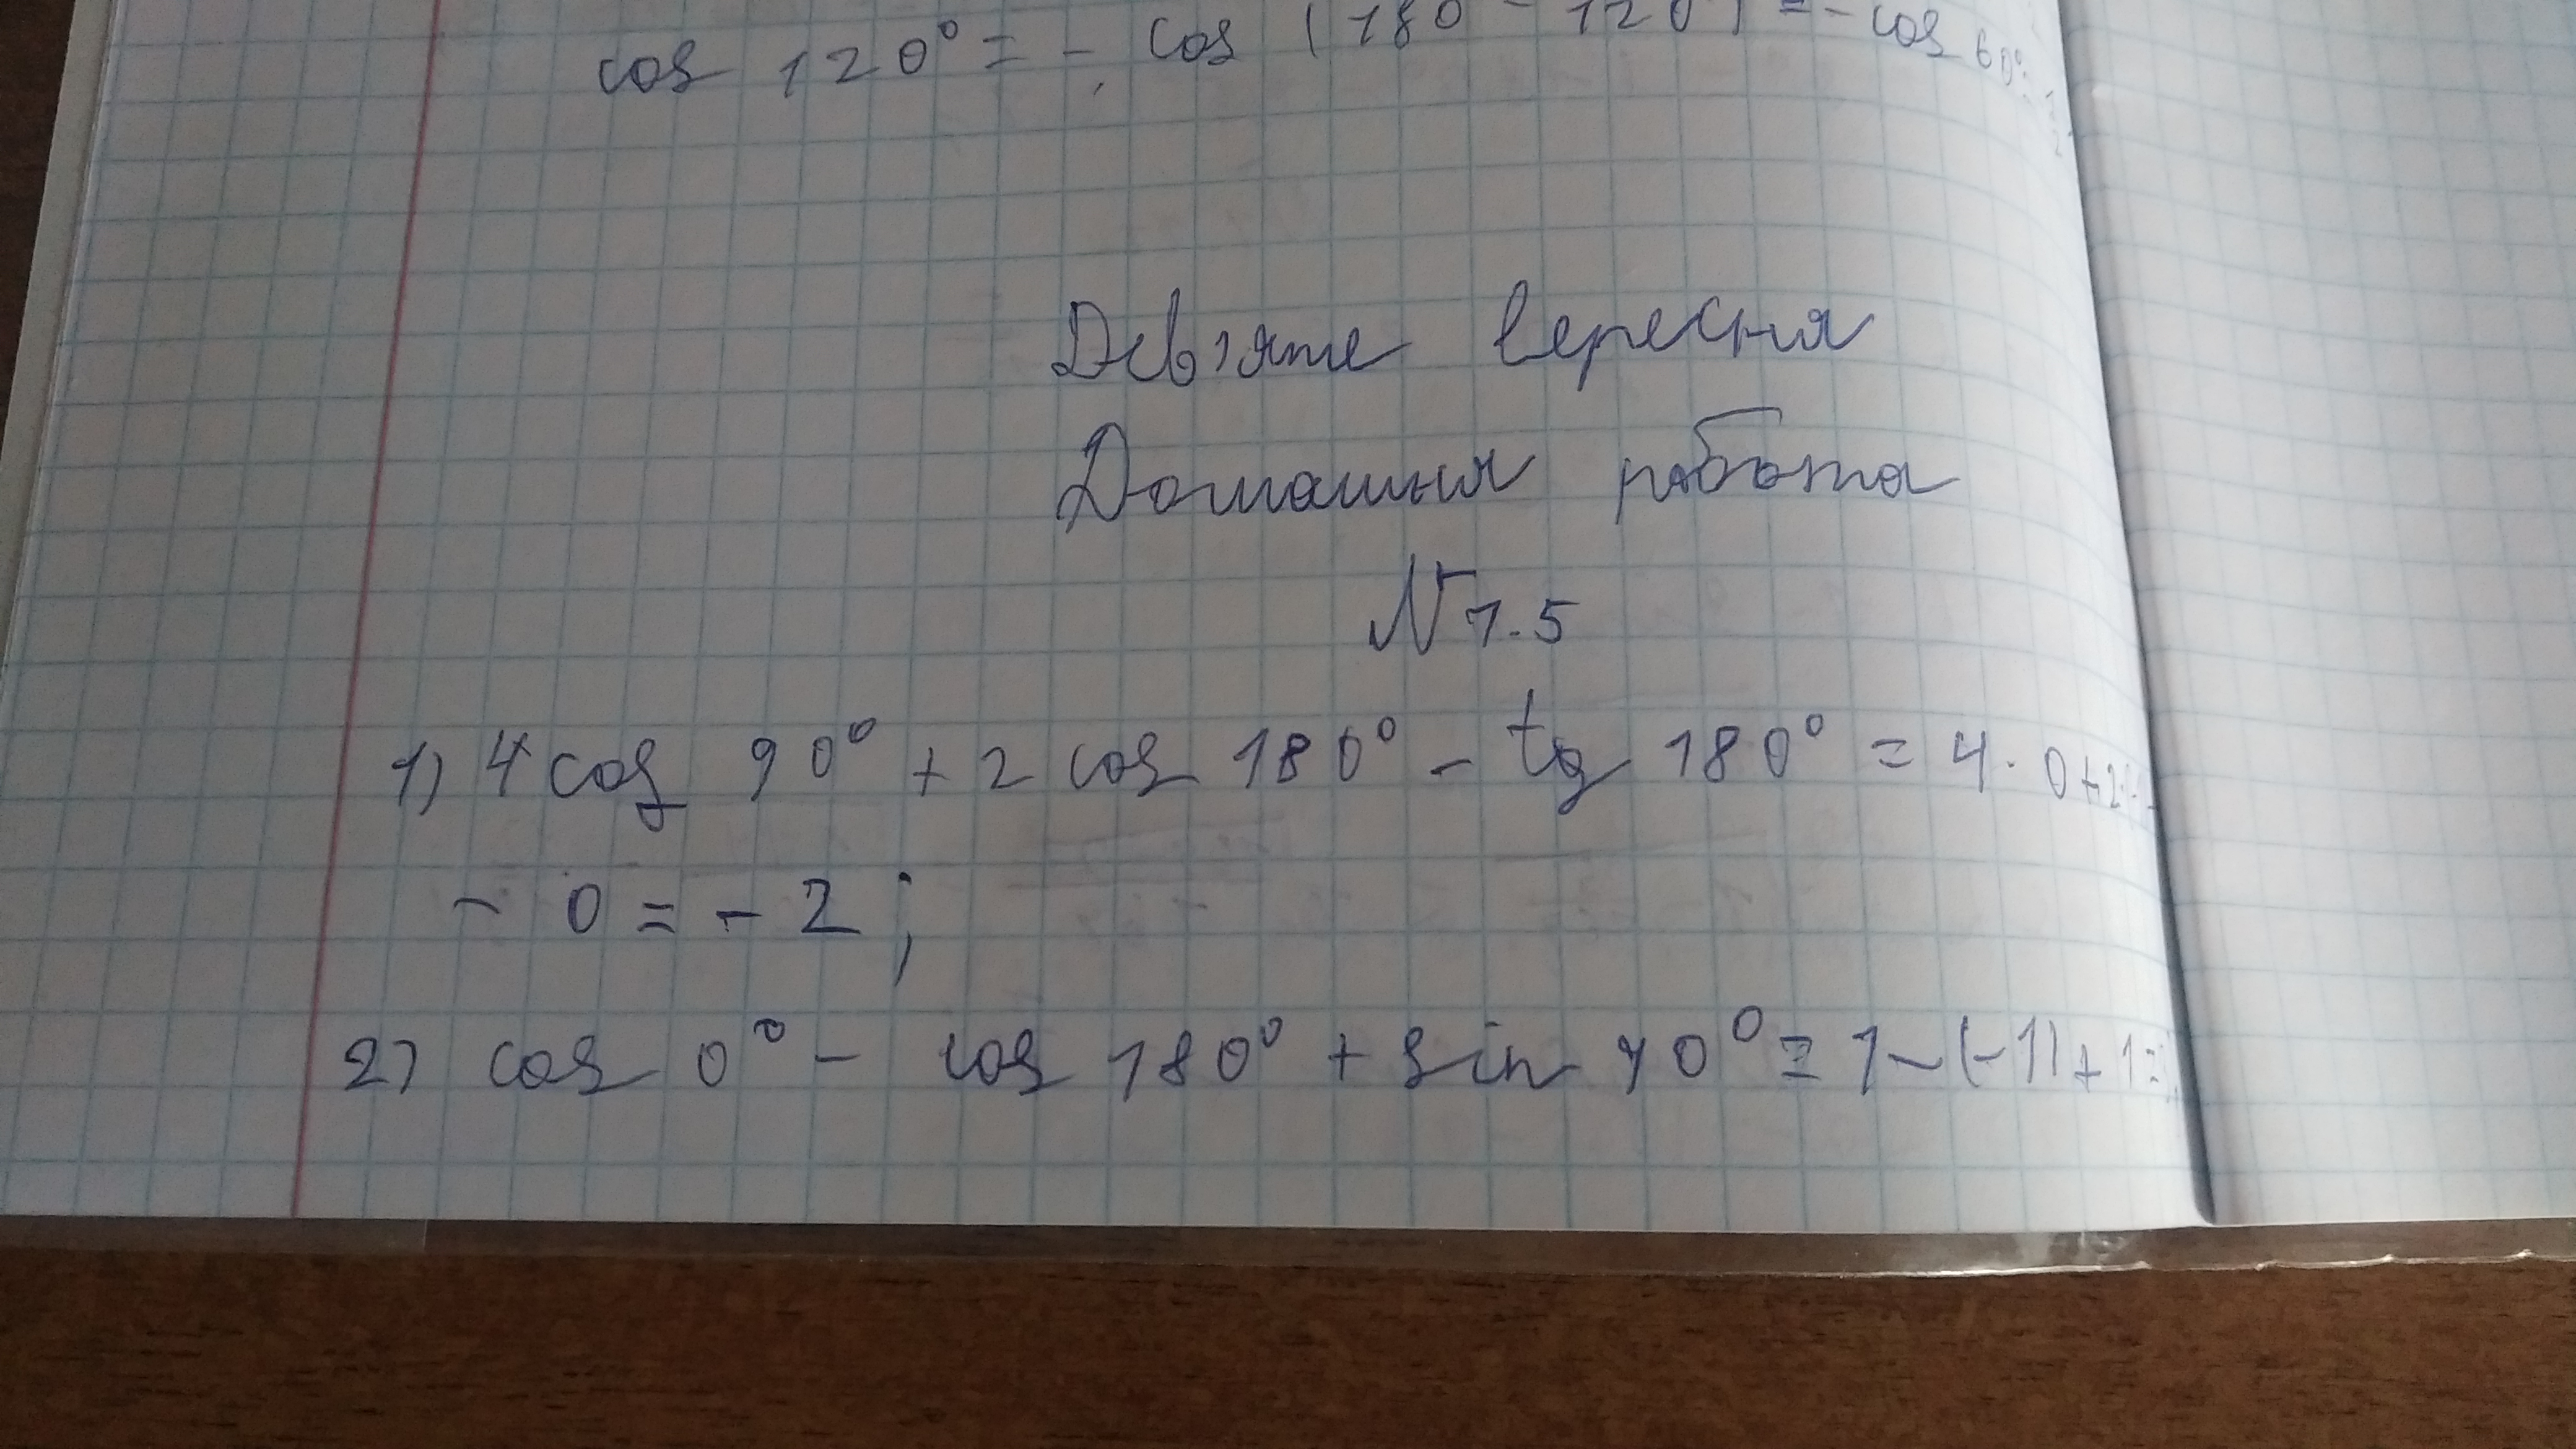 cos 120° = - cos (180 - 120) = - cos 60°
Дев'яте вересня
Домашня робота
N 1.5
1) 4 cos 90° + 2 cos 180° - tg 180° = 4 · 0 + 2 ·
- 0 = - 2 ;
2) cos 0° - cos 180° + sin 90° = 1 - (-1) + 1 =